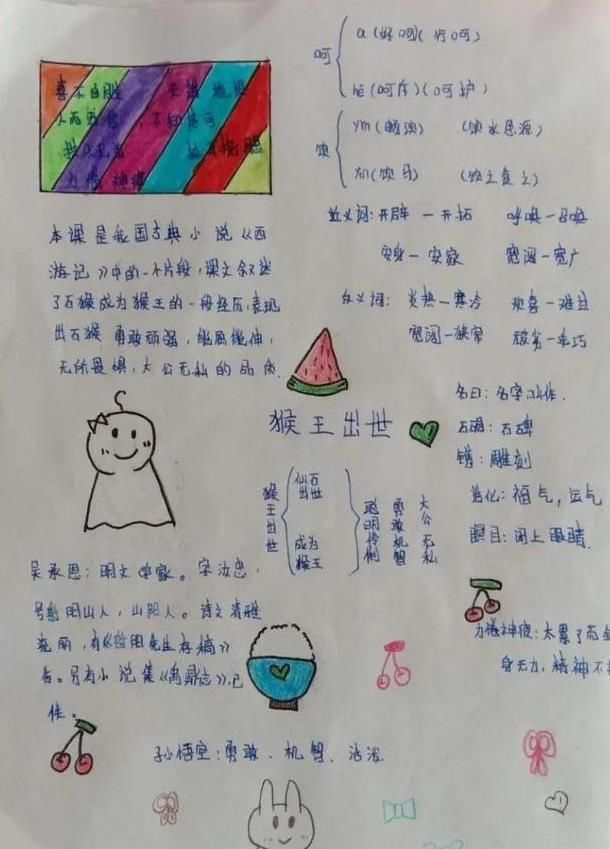 喜不自胜 无影
人而无信，不知其可
抓耳挠腮
力倦神疲
本课是我国古典小说《西
游记》中的一个片段，课文叙述
了石猴成为猴王的一段经历，表现
出石猴勇敢顽强，能屈能伸，
无所畏惧，大公无私的品质.
呵
a(好呵)(行呵)
hē(呵斥)(呵护)
饮
yǐn(畅饮) (饮水思源)
yìn(饮马) (饮之食之)
近义词:开辟一开拓 呼唤一召唤
安身一安家 宽阔一宽广
反义词: 炎热一寒冷 欢喜一难过
宽阔一狭窄 顽劣一乖巧
名曰:名字叫作.
石碣:石碑
镌:雕刻
造化:福气,运气
瞑目:闭上眼睛.
力倦神疲:太累了而全
身无力,精神不
猴王出世
猴王出世
仙石出世
成为猴王
聪明伶俐
勇敢机智
大公无私
吴承恩:明文学家。字汝忠,
号射阳山人,山阳人。诗文清雅
流丽,有《射阳先生存稿》
传。另有小说集《禹鼎志》,已
佚。
孙悟空:勇敢、机智、活泼